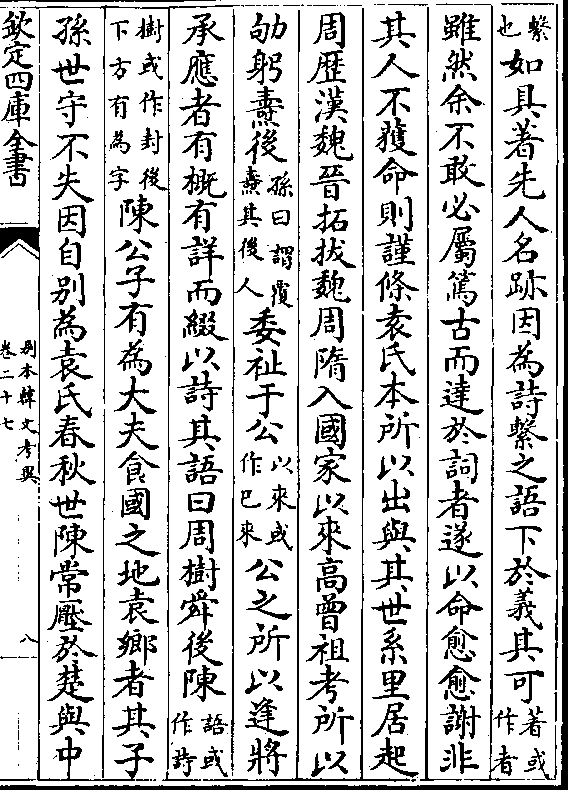 繫也如具著先人名跡因為詩繫之語下於義其可著或作者
雖然余不敢必屬篤古而達於詞者遂以命愈愈謝非
其人不獲命則謹條袁氏本所以出與其世系里居起
周歴漢魏晉拓拔魏周隋入國家以來高曾祖考所以
劬躬燾後孫曰謂覆燾其後人委祉于公以來或作巳來公之所以逢將
承應者有概有詳而綴以詩其語曰周樹舜後陳語或作詩
樹或作封後下方有為字陳公子有為大夫食國之地袁鄉者其子
孫世守不失因自别為袁氏春秋世陳常壓於楚與中
欽定四庫全書
别本韓文考異
卷二十七
八